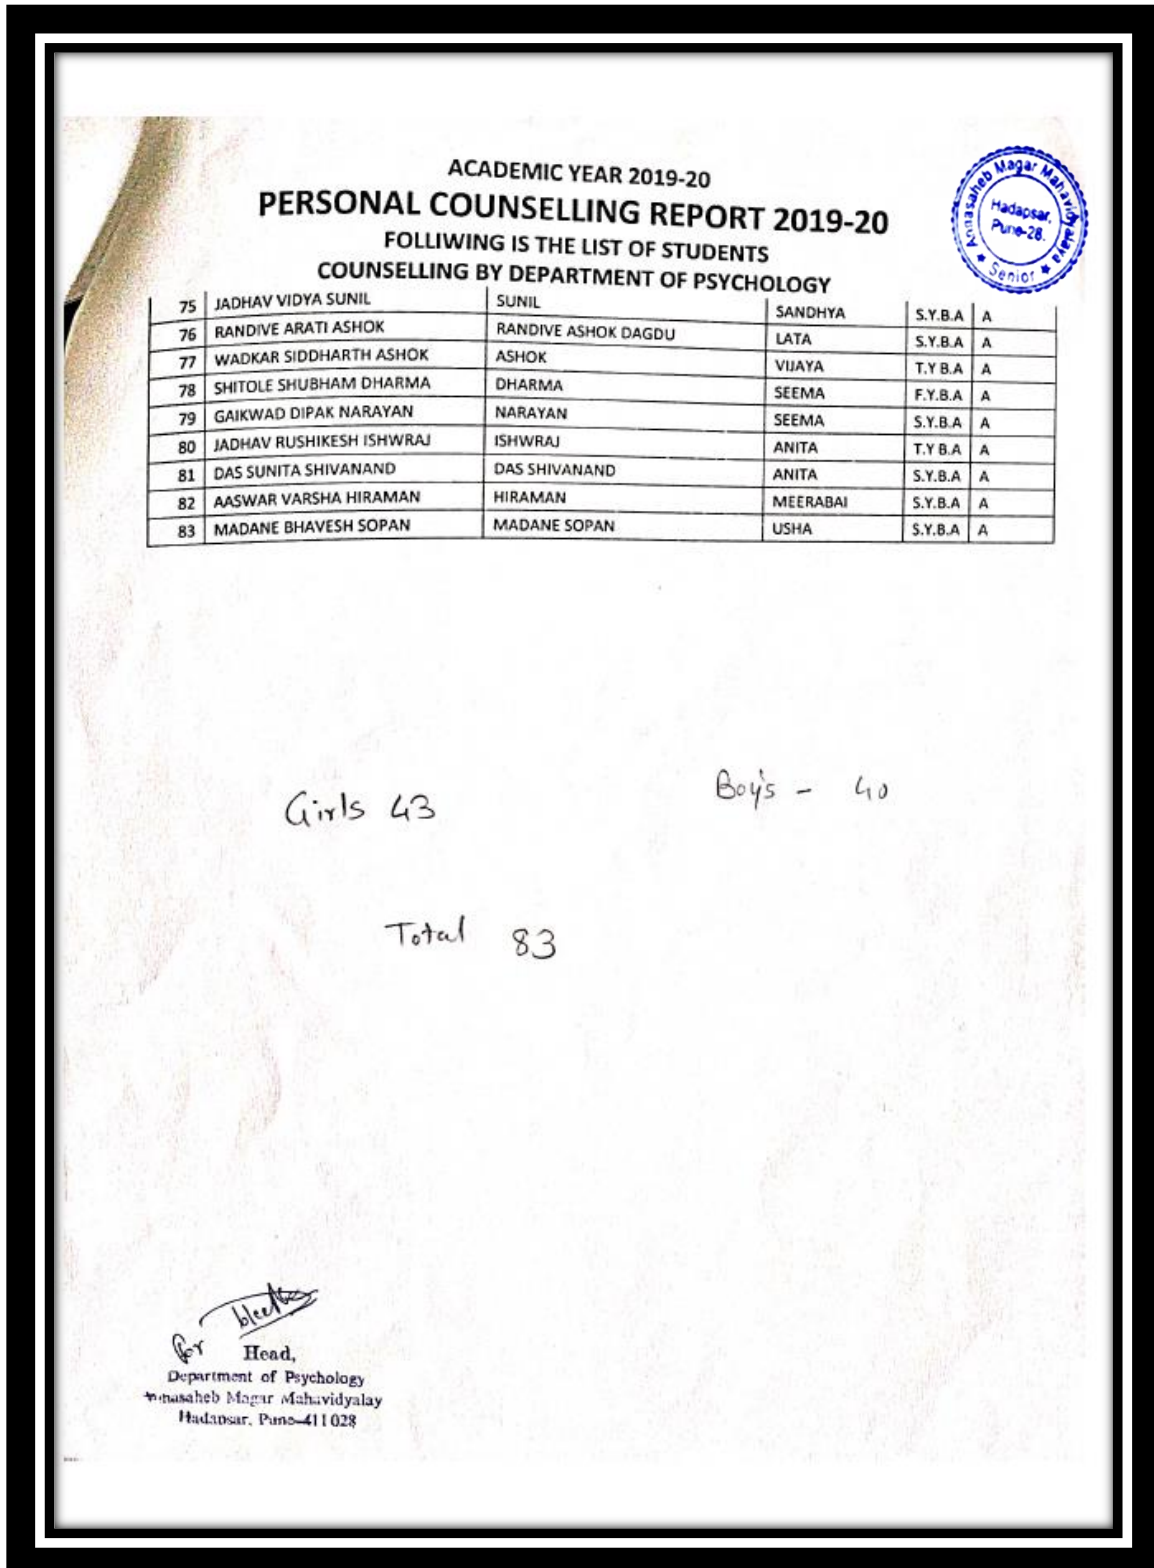 ACADEMIC YEAR 2019-20
PERSONAL COUNSELLING REPORT 2019-20
FOLLIWING IS THE LIST OF STUDENTS
COUNSELLING BY DEPARTMENT OF PSYCHOLOGY
Annasaheb Magar Mahavidyalaya
Hadapsar,
Pune-28.
★ Senior ★
75 JADHAV VIDYA SUNIL SUNIL SANDHYA S.Y.B.A A
76 RANDIVE ARATI ASHOK RANDIVE ASHOK DAGDU LATA S.Y.B.A A
77 WADKAR SIDDHARTH ASHOK ASHOK VIJAYA T.Y B.A A
78 SHITOLE SHUBHAM DHARMA DHARMA SEEMA F.Y.B.A A
79 GAIKWAD DIPAK NARAYAN NARAYAN SEEMA S.Y.B.A A
80 JADHAV RUSHIKESH ISHWRAJ ISHWRAJ ANITA T.Y B.A A
81 DAS SUNITA SHIVANAND DAS SHIVANAND ANITA S.Y.B.A A
82 AASWAR VARSHA HIRAMAN HIRAMAN MEERABAI S.Y.B.A A
83 MADANE BHAVESH SOPAN MADANE SOPAN USHA S.Y.B.A A
Girls 43 Boy's - 40
Total 83
for
Head,
Department of Psychology
Annasaheb Magar Mahavidyalay
Hadapsar, Pune-411028